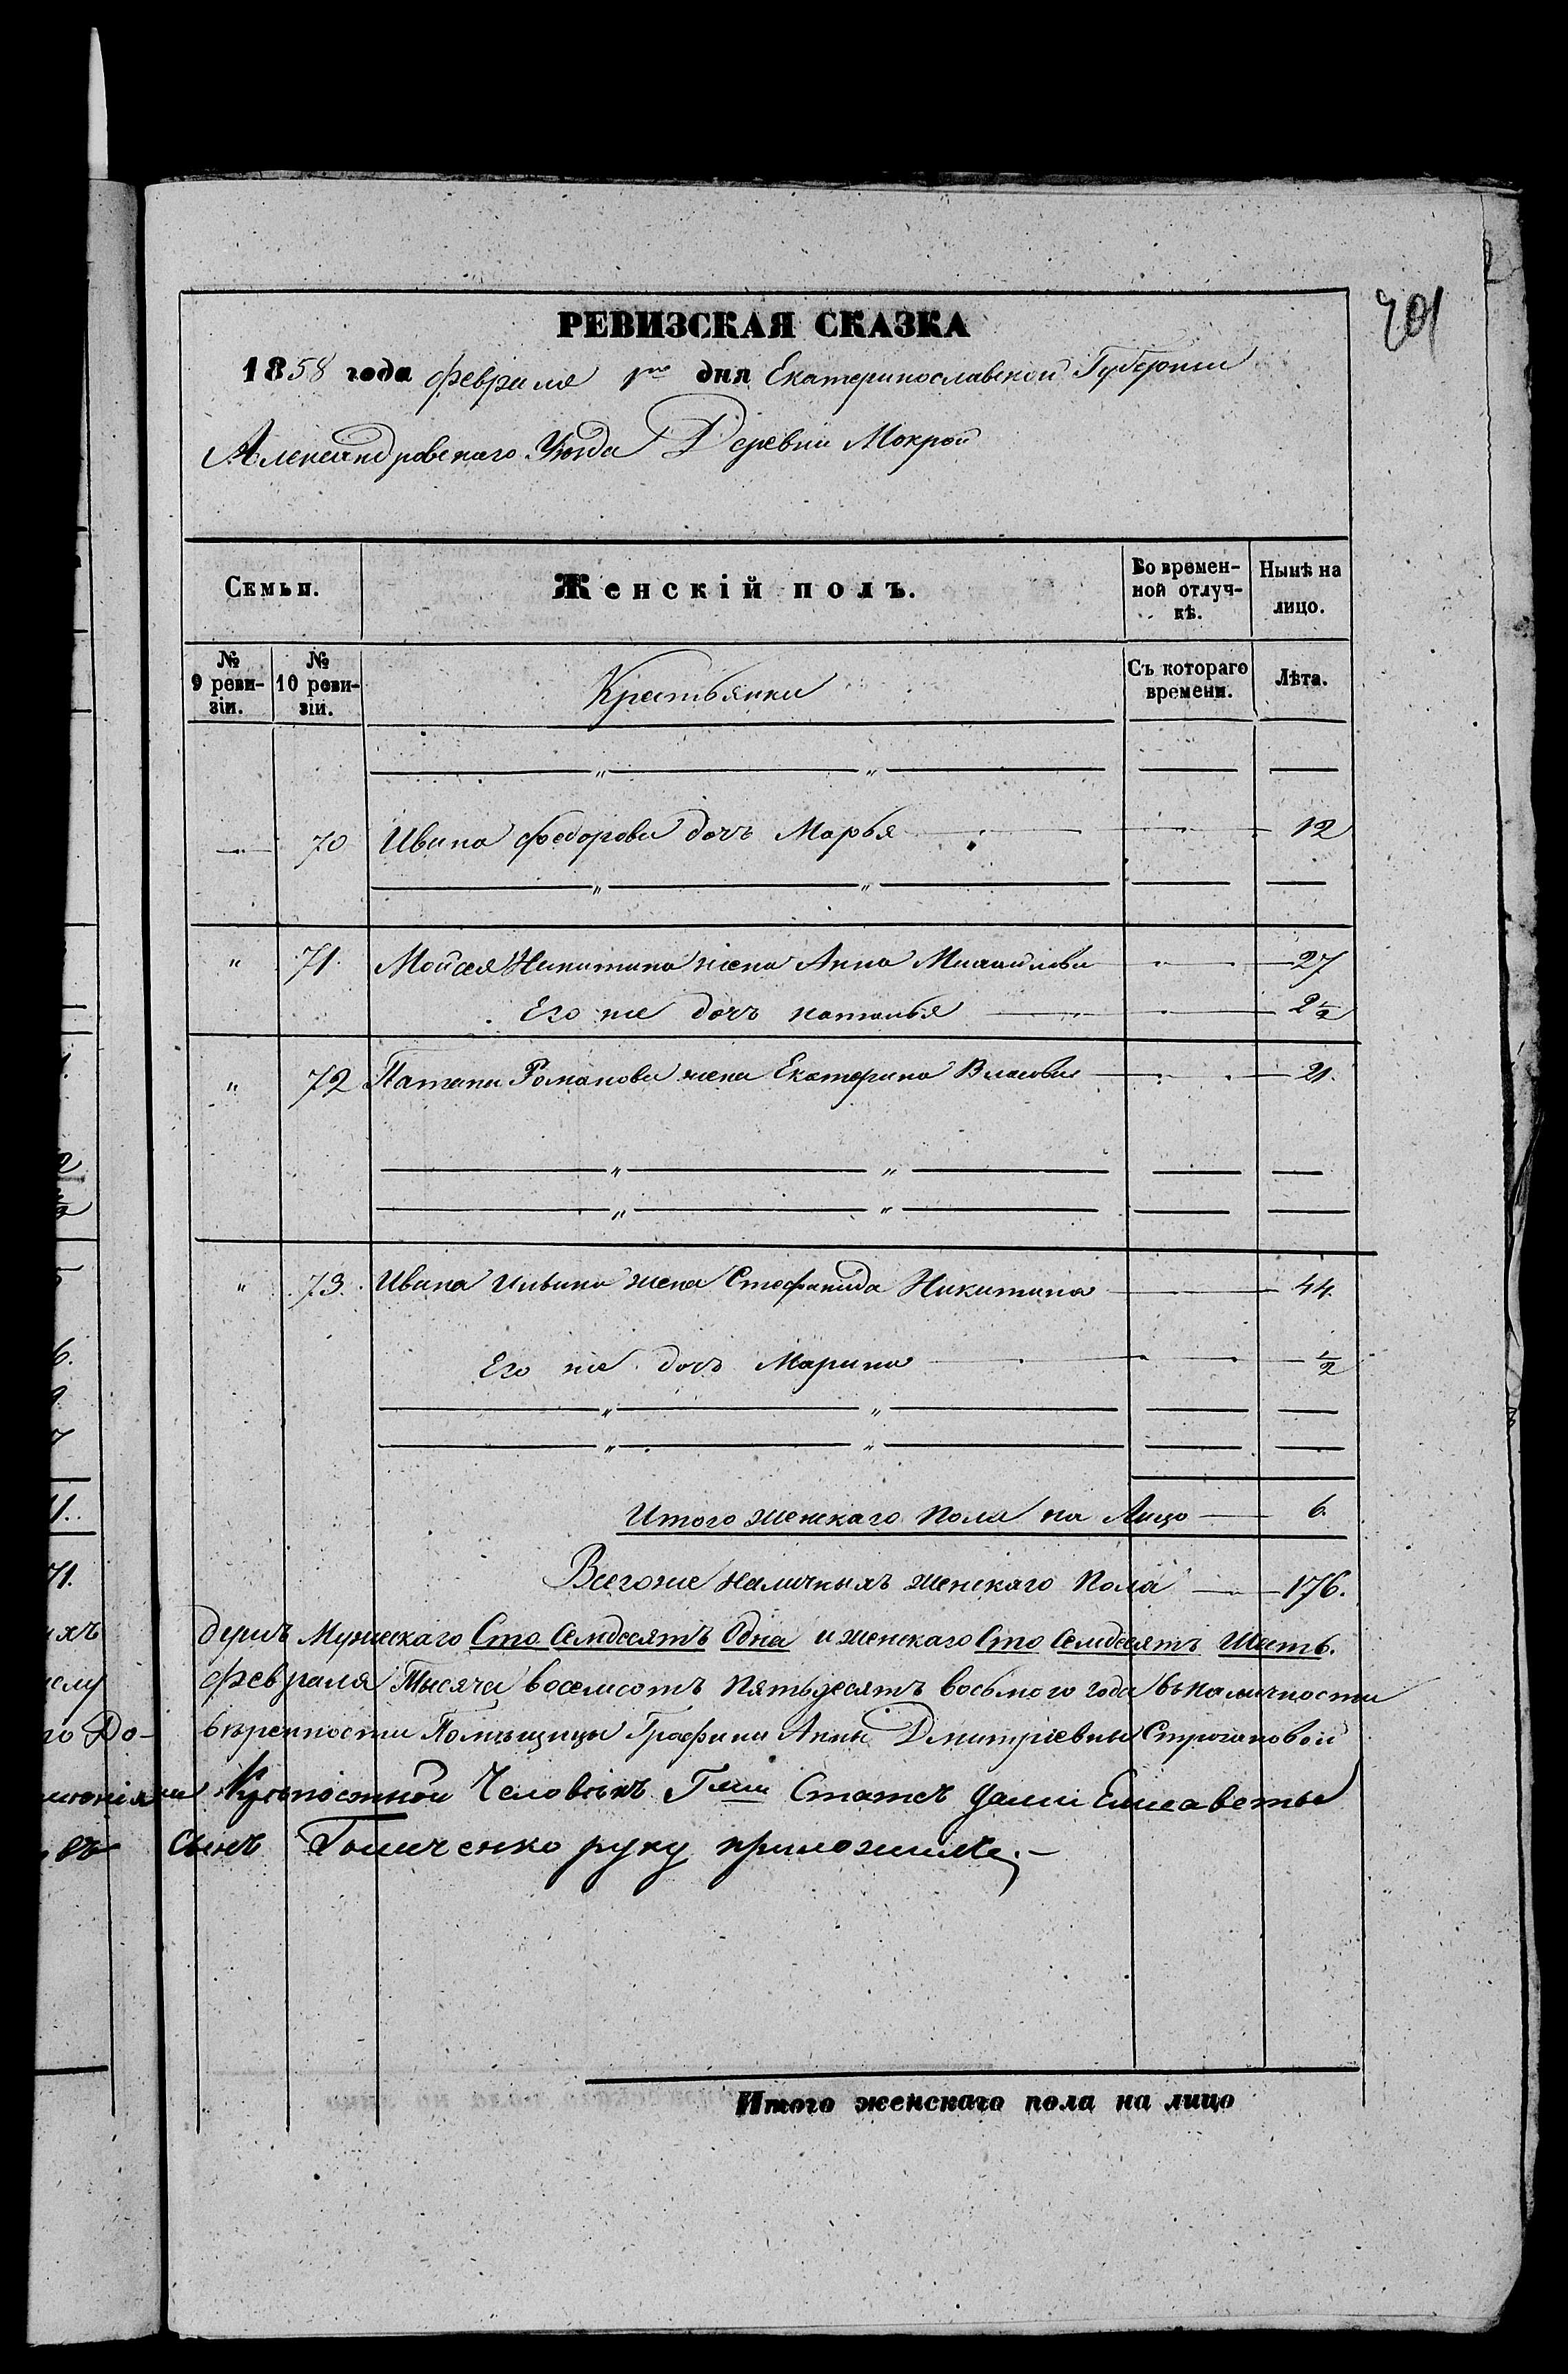 701
РЕВИЗСКАЯ СКАЗКА
1858 года февраля 1го дня Екатеринославской Губернии
Александровскаго Уѣзда Деревни Мокрой
Семьи. Женскій полъ. Во временной отлучкѣ. Нынѣ на лицо.
№ 9 ревизіи. № 10 ревизіи. Крестьянки Съ котораго времени. Лѣта.
— 70 Ивана Федорова дочъ Марья 12
" 71. Мойсея Никитина жена Анна Михайлова 27
Его же дочъ Наталья 2 1/2
" 72 Патапа Романова жена Екатерина Власова 21.
" 73. Ивана Ильина жена Стефанида Никитина 44.
Его же дочъ Марина 1/2
Итого женскаго пола на Лицо 6.
Всегоже наличныхъ женскаго Пола 176.
душъ Мужескаго Сто Семдесятъ Одна и женскаго Сто Семдесятъ Шесть.
февраля Тысяча восемсотъ пятьдесятъ восьмого года въ наличности
въ крепности Помѣщицы Графини Анны Дмитріевны Строгановой
Крѣпостной Человѣкъ Статсъ дамы Елисаветы
сынъ руку приложилъ.
Итого женскаго пола на лицо